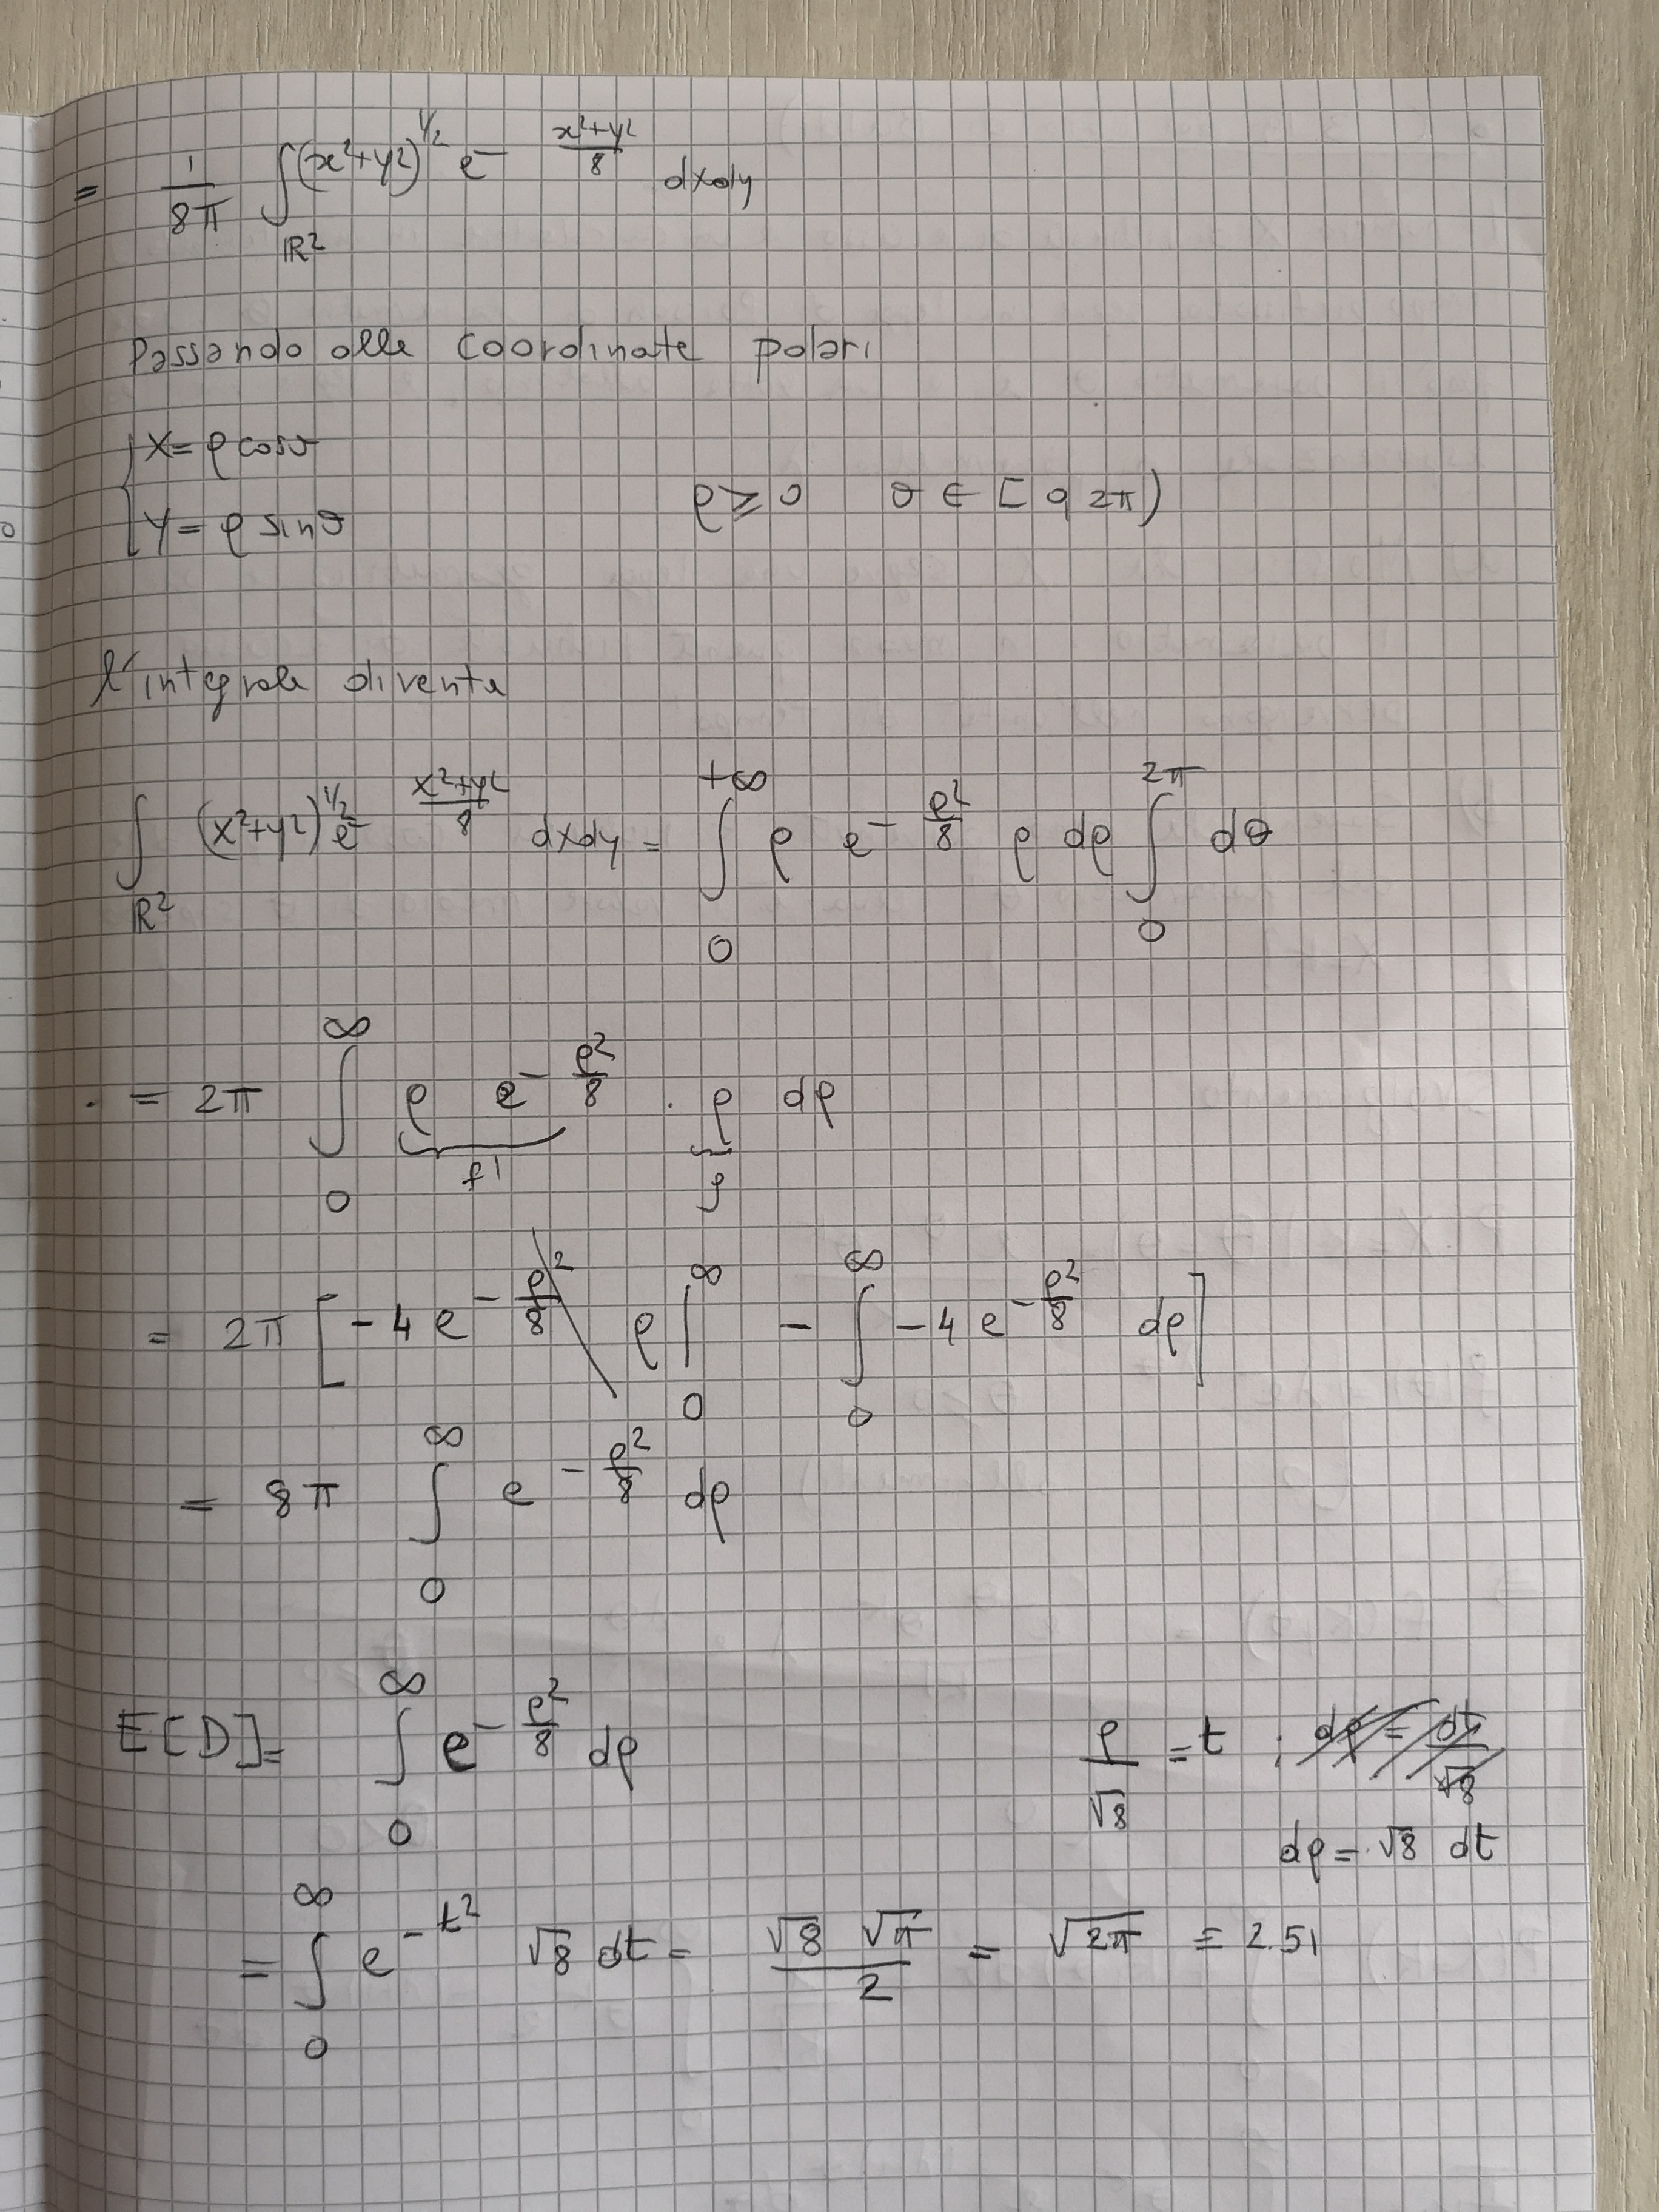 = 1/8π ∫_ℝ² (x²+y²)^1/2 e^- x²+y²/8 dxdy
Passando alle coordinate polari
{ x = ρ cosϑ
{ y = ρ sinϑ ρ ≥ 0 ϑ ∈ [0, 2π)
l'integrale diventa
∫_ℝ² (x²+y²)^1/2 e^- x²+y²/8 dxdy = ∫_0^+∞ ρ e^- ρ²/8 ρ dρ ∫_0^2π dϑ
= 2π ∫_0^∞ ρ e^- ρ²/8 · ρ dρ
f' g
= 2π [ -4 e^- ρ²/8 ρ |_0^∞ - ∫_0^∞ -4 e^- ρ²/8 dρ ]
= 8π ∫_0^∞ e^- ρ²/8 dρ
E[D] = ∫_0^∞ e^- ρ²/8 dρ ρ/√8 = t ; dρ = dt/√8
dρ = √8 dt
= ∫_0^∞ e^-t² √8 dt = √8 √π/2 = √2π = 2.51